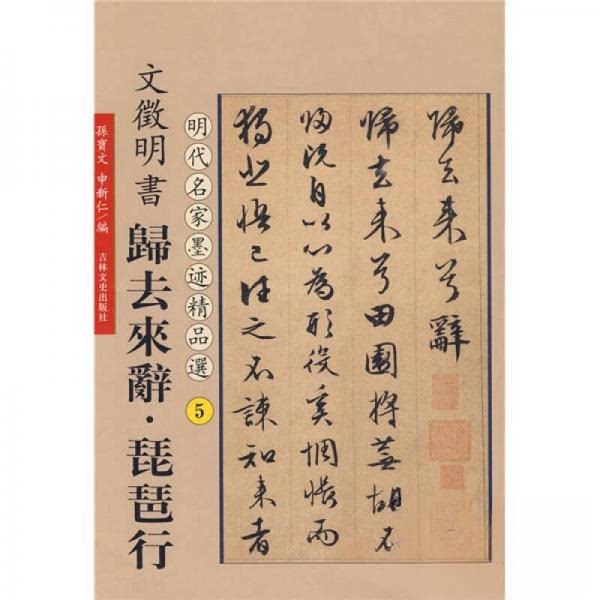 歸去来兮辭
歸去来兮田園将蕪胡不
歸既自以心為形役奚惆悵而
獨悲悟已往之不諫知来者
明代名家墨迹精品選 5
文徵明書 歸去來辭·琵琶行
孫寶文 申新仁/編
吉林文史出版社